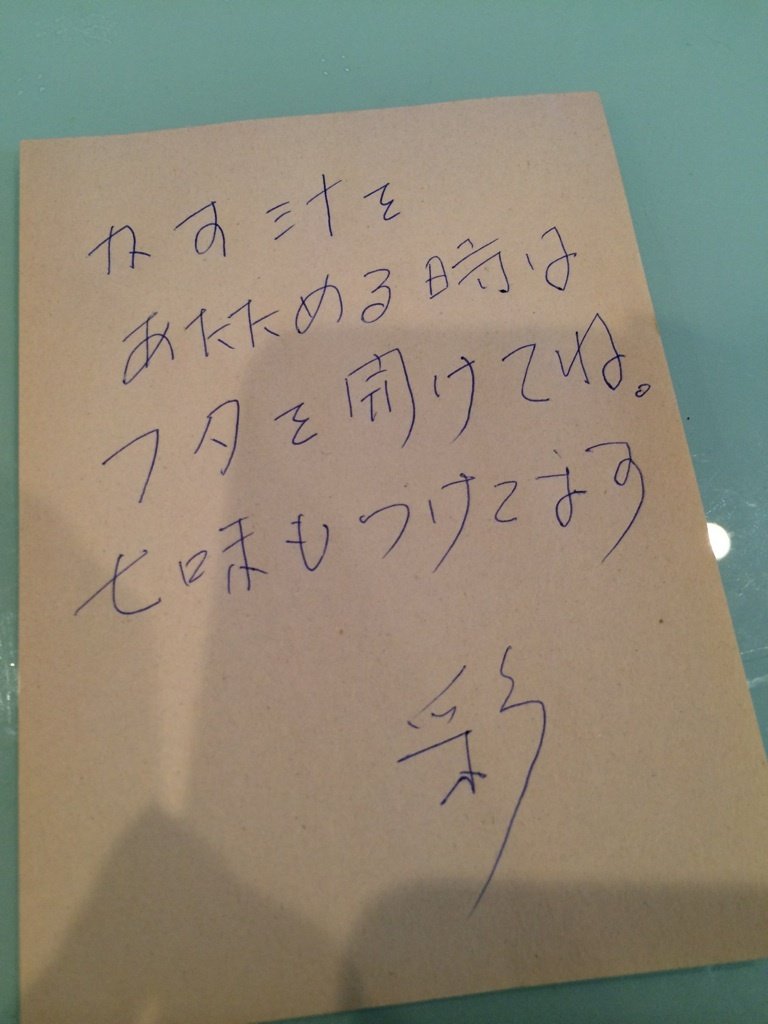 かす汁を
あたためる時は
フタを開けてね。
七味もつけてます
彩